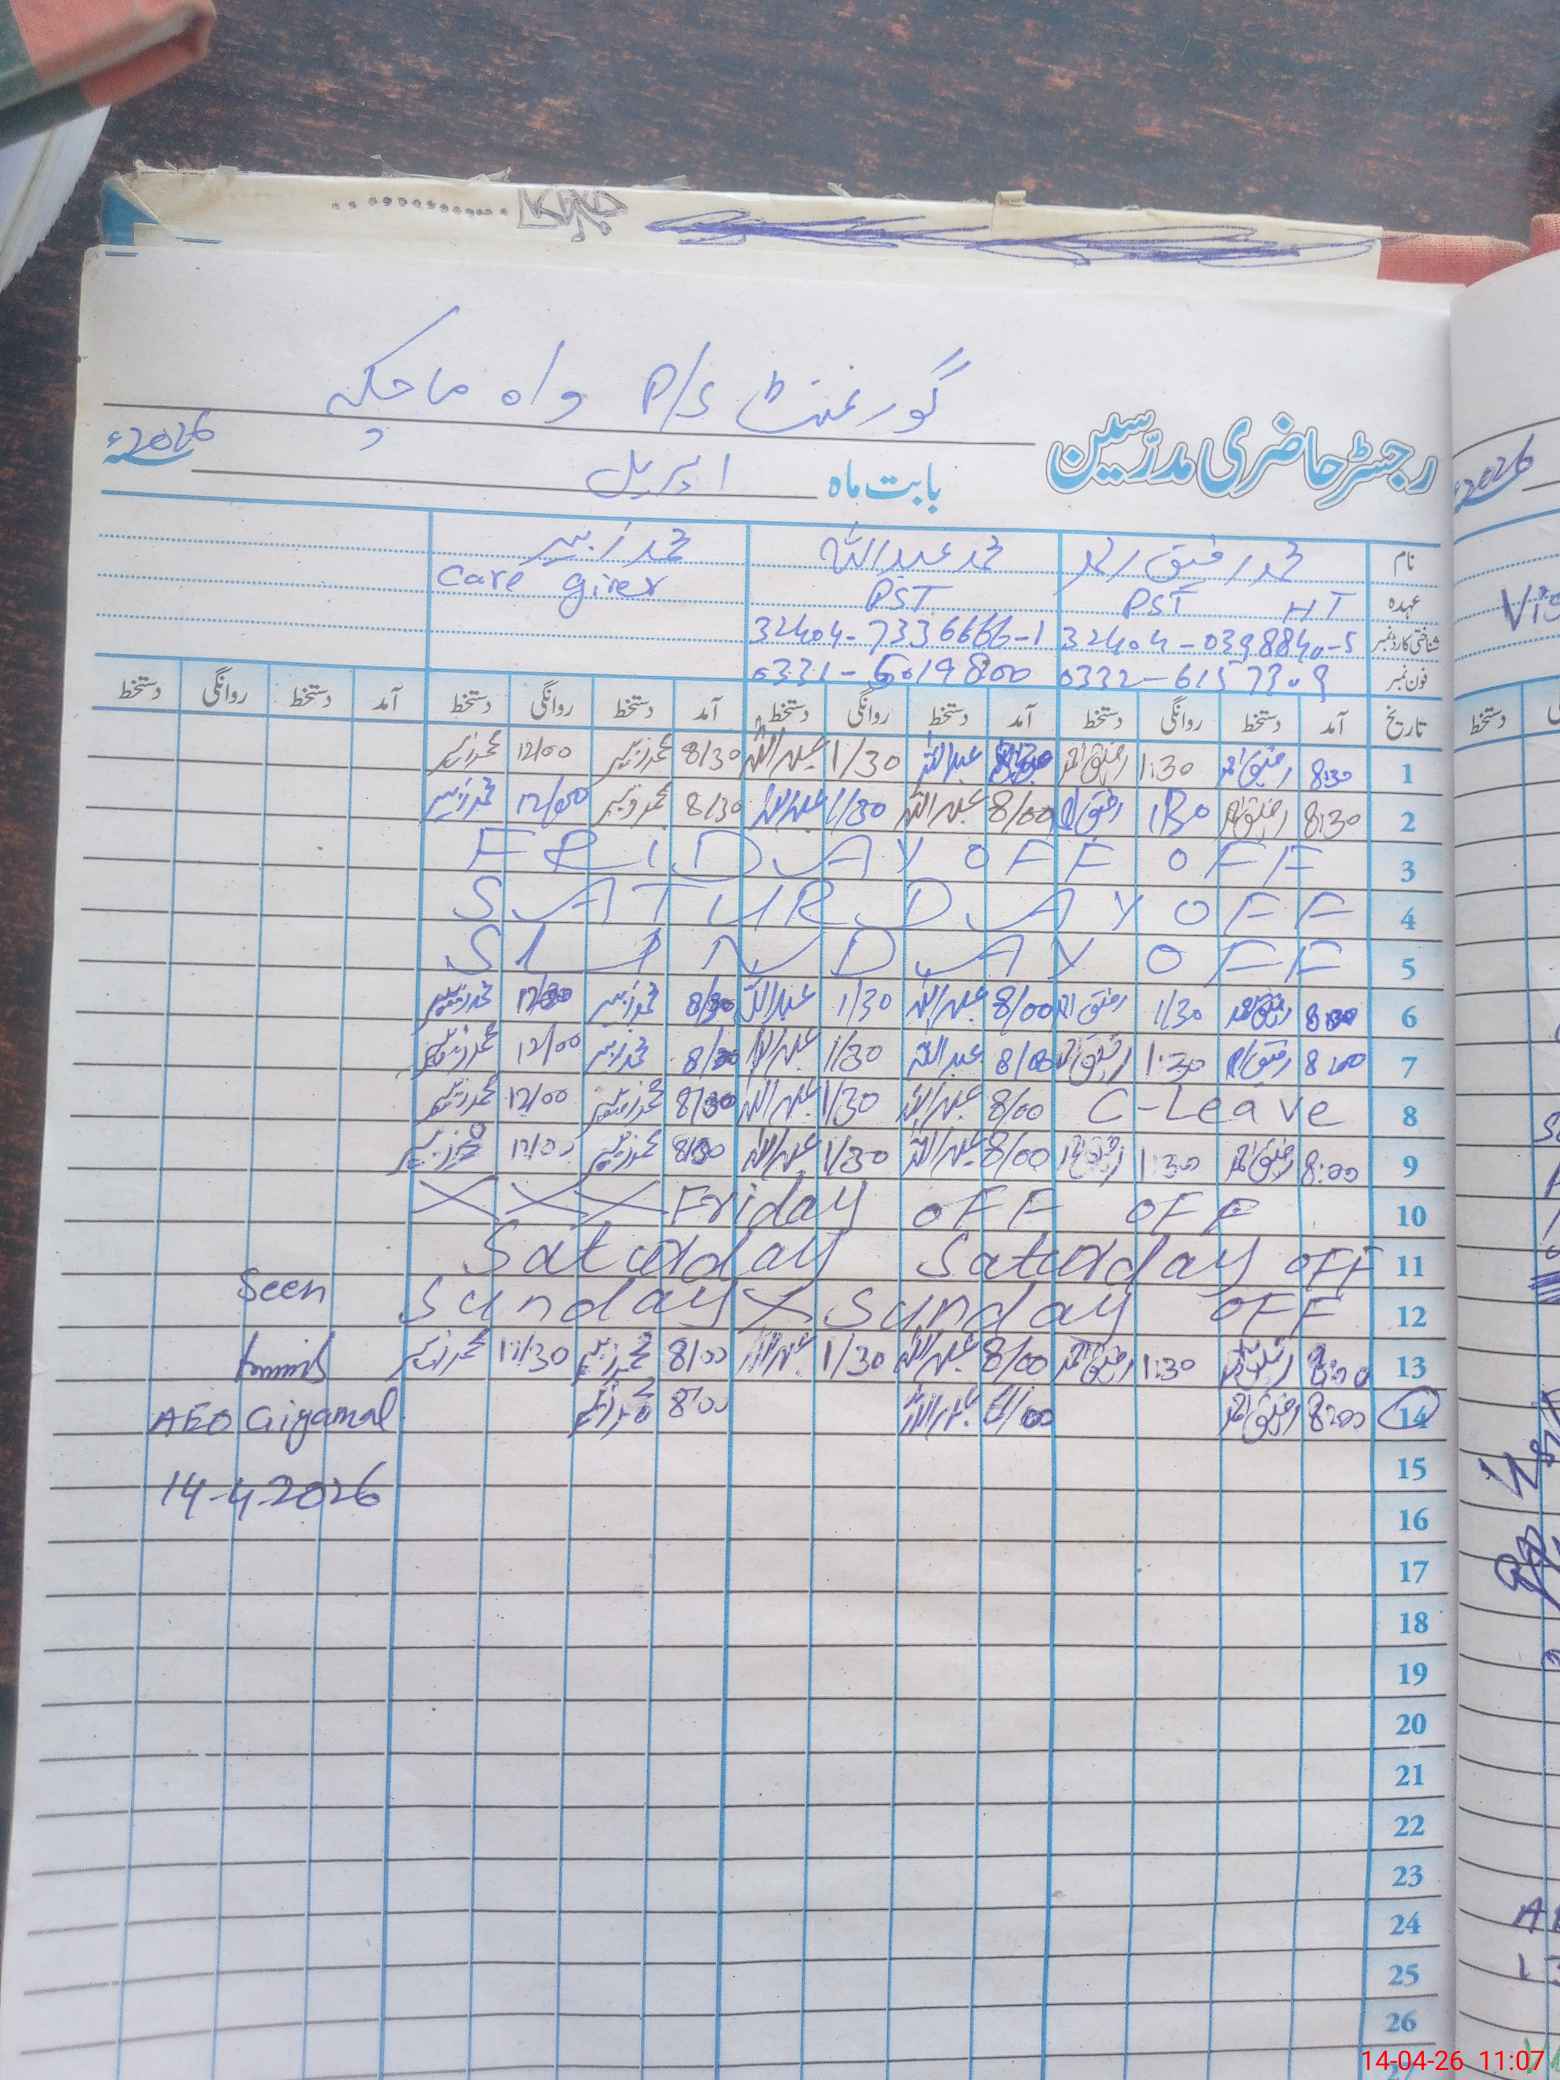 گورنمنٹ P/S واہ ماچکہ
رجسٹر حاضری مدرّسین
بابت ماہ اپریل 2026ء
نام محمد رفیق احمد محمد عبداللہ محمد زبیر
عہدہ PST HT PST Care giver
شناختی کارڈ نمبر 32404-0398840-5 32404-7336666-1
فون نمبر 0332-6157309 0331-6019800
تاریخ آمد دستخط روانگی دستخط آمد دستخط روانگی دستخط آمد دستخط روانگی دستخط آمد دستخط روانگی دستخط
1 8:30 رفیق احمد 1:30 رفیق احمد عبداللہ 1/30 عبداللہ 8/30 محمد زبیر 12/00 محمد زبیر
2 8:30 رفیق احمد 1:30 رفیق احمد 8/00 عبداللہ 1/30 عبداللہ 8/30 محمد زبیر 12/00 محمد زبیر
3 FRIDAY OFF OFF
4 SATURDAY OFF
5 SUNDAY OFF
6 رفیق احمد 1/30 رفیق احمد 8/00 عبداللہ 1/30 عبداللہ 8/30 محمد زبیر محمد زبیر
7 8:00 رفیق احمد 1:30 رفیق احمد 8/00 عبداللہ 1/30 عبداللہ محمد زبیر 12/00 محمد زبیر
8 C-Leave 8/00 عبداللہ 1/30 عبداللہ 8/30 محمد زبیر 12/00 محمد زبیر
9 8:00 رفیق احمد 1:30 رفیق احمد 8/00 عبداللہ 1/30 عبداللہ محمد زبیر 12/00 محمد زبیر
10 Friday OFF OFF
11 Saturday Saturday OFF
12 Sunday Sunday OFF
13 8:00 رفیق احمد 1:30 رفیق احمد 8/00 عبداللہ 1/30 عبداللہ 8/00 محمد زبیر محمد زبیر
14 8:00 رفیق احمد عبداللہ 8:00 محمد زبیر
Seen
AEO Giyamal
14-4-2026
15
16
17
18
19
20
21
22
23
24
25
26
27
14-04-26 11:07